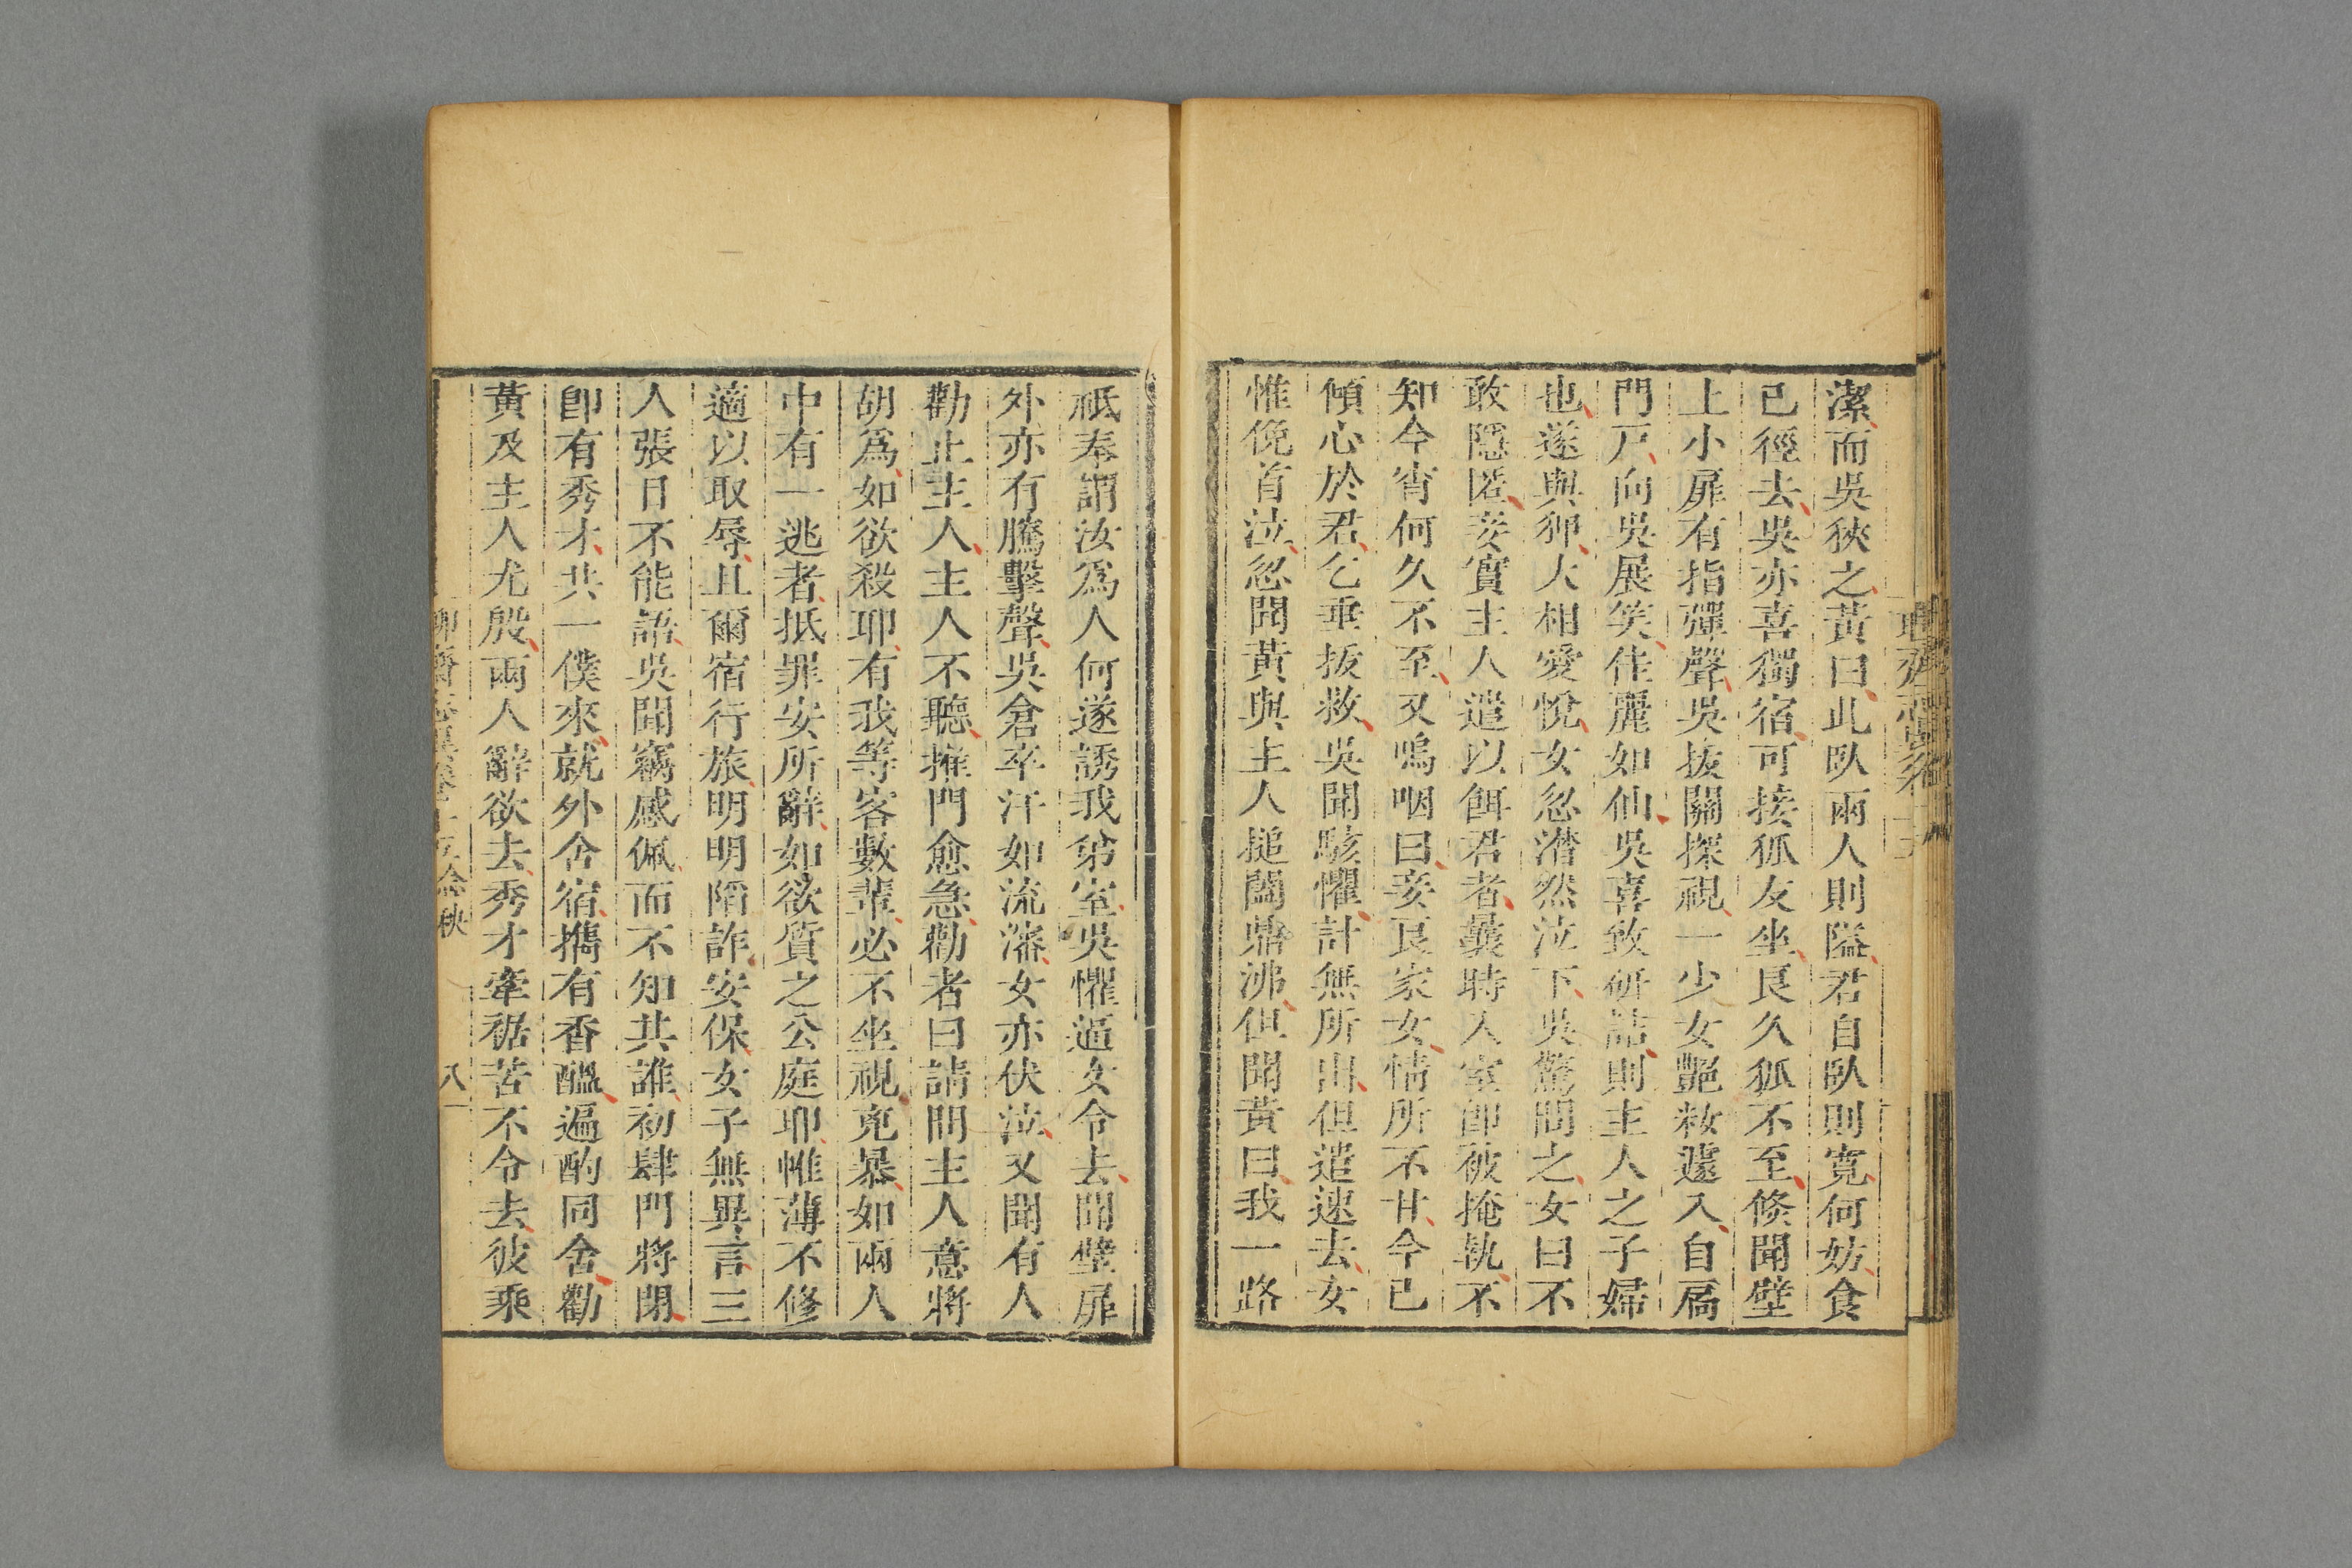 潔而吳狹之黃曰此臥兩人則隘君自臥則寬何妨食
已徑去吳亦喜獨宿可接狐友坐良久狐不至倐聞壁
上小扉有指彈聲吳拔關探視一少女艷粧遽入自扃
門戸向吳展笑佳麗如仙吳喜致研詰則主人之子婦
也遂與狎大相愛悅女忽潸然泣下吳驚問之女曰不
敢隱匿妾實主人遣以餌君者曩時入室卽被掩執不
知今宵何久不至又嗚咽曰妾良家女情所不甘今已
傾心於君乞垂拔救吳聞駭懼計無所出但遣速去女
惟俛首泣忽聞黃與主人搥闔鼎沸但聞黃曰我一路
祇奉謂汝爲人何遂誘我弟室吳懼逼女令去聞壁扉
外亦有騰擊聲吳倉卒汗如流瀋女亦伏泣又聞有人
勸止主人主人不聽推門愈急勸者曰請問主人意將
胡爲如欲殺耶有我等客數輩必不坐視兇暴如兩人
中有一逃者抵罪安所辭如欲質之公庭耶惟薄不修
適以取辱且爾宿行旅明明陷詐安保女子無異言三
人張目不能語吳聞竊感佩而不知其誰初肆門將閉
卽有秀才共一僕來就外舍宿擕有香醞遍酌同舍勸
黃及主人尤殷兩人辭欲去秀才牽裾苦不令去彼乘
聊齋志異卷十五 念秧 八